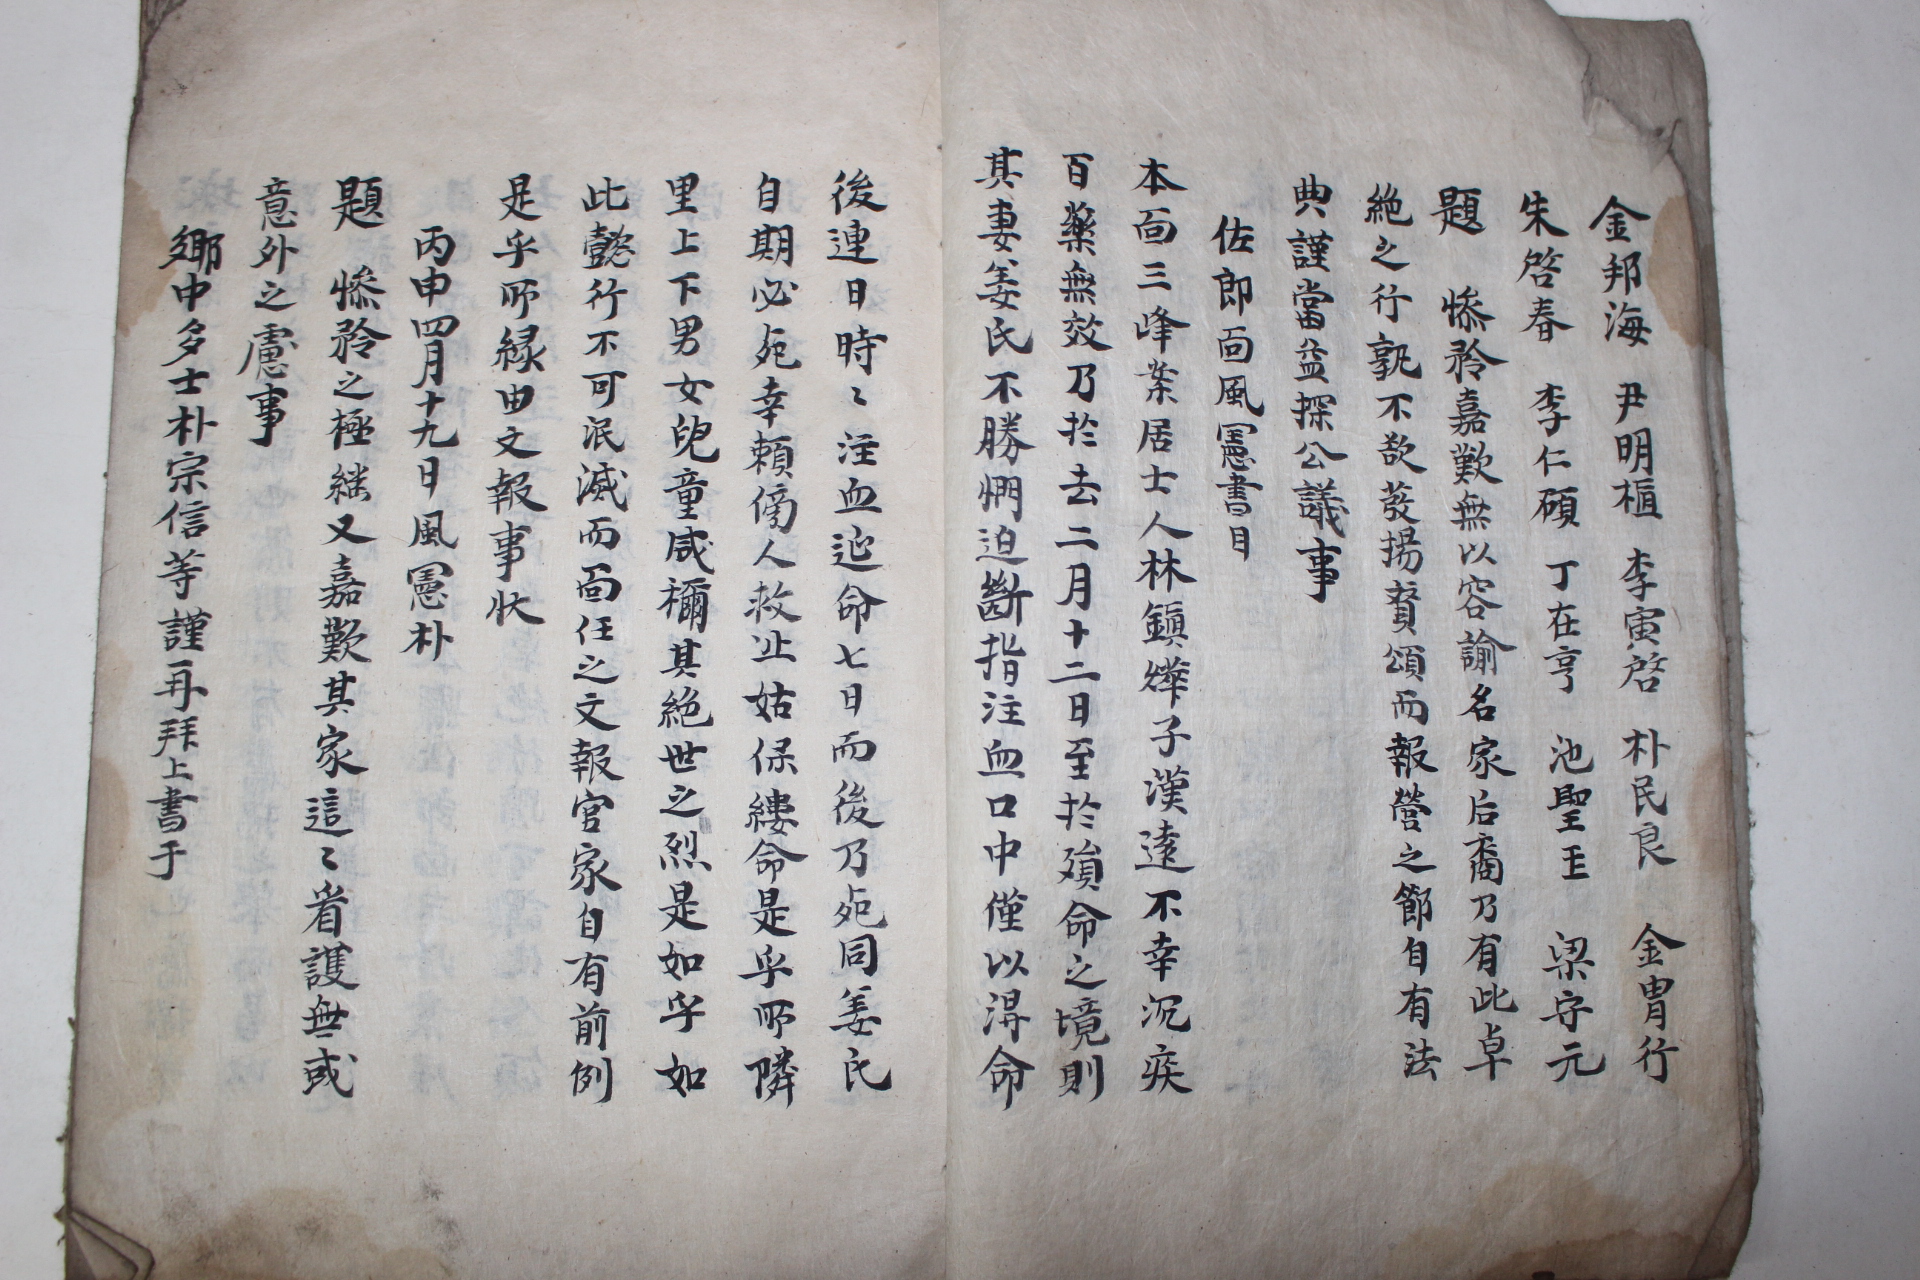 金邦海 尹明樞 李寅啓 朴民良 金胄行
朱啓春 李仁碩 丁在亨 池聖玉 梁守元
題 慘矜嘉歎無以容諭名家后裔乃有此卓
絶之行孰不欲發揚賁頌而報營之節自有法
典謹當益探公議事
佐郎面風憲書目
本面三峰案居士人林鎭燁子漢逵不幸沉疾
百藥無效乃於去二月十二日至於殞命之境則
其妻姜氏不勝惘迫斷指注血口中僅以得命
後連日時〻注血延命七日而後乃死同姜氏
自期必死幸賴傍人救止姑保縷命是乎所隣
里上下男女兒童咸稱其絶世之烈是如乎如
此懿行不可泯滅而面任之文報官家自有前例
是乎所緣由文報事狀
丙申四月十九日風憲朴
題 慘矜之極繼又嘉歎其家這〻看護無或
意外之慮事
鄕中多士朴宗信等謹再拜上書于